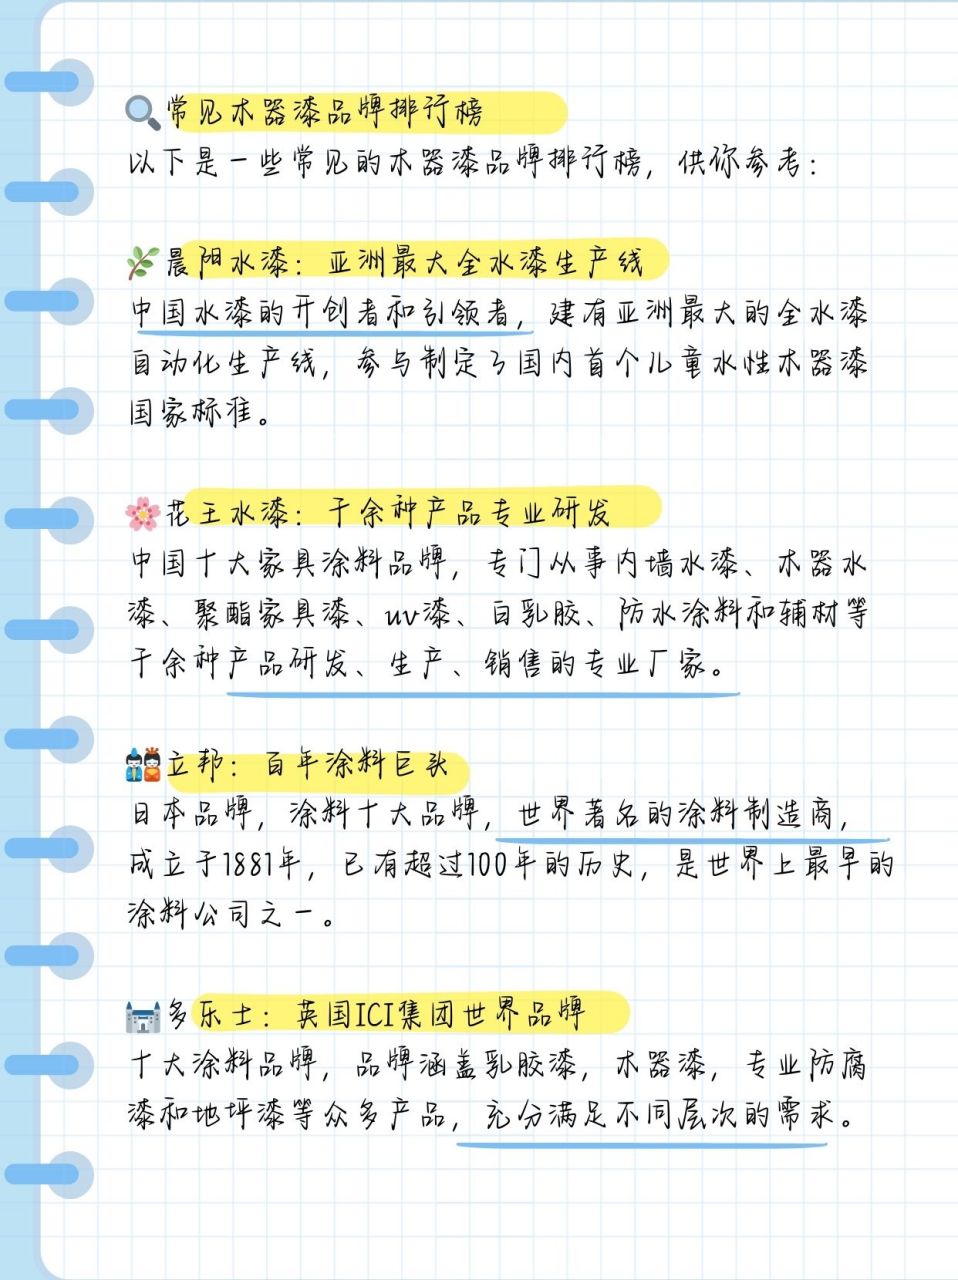 常见木器漆品牌排行榜
以下是一些常见的木器漆品牌排行榜，供你参考：
晨阳水漆：亚洲最大全水漆生产线
中国水漆的开创者和引领者，建有亚洲最大的全水漆
自动化生产线，参与制定了国内首个儿童水性木器漆
国家标准。
花王水漆：千余种产品专业研发
中国十大家具涂料品牌，专门从事内墙水漆、木器水
漆、聚酯家具漆、uv漆、白乳胶、防水涂料和辅材等
千余种产品研发、生产、销售的专业厂家。
立邦：百年涂料巨头
日本品牌，涂料十大品牌，世界著名的涂料制造商，
成立于1881年，已有超过100年的历史，是世界上最早的
涂料公司之一。
多乐士：英国ICI集团世界品牌
十大涂料品牌，品牌涵盖乳胶漆，木器漆，专业防腐
漆和地坪漆等众多产品，充分满足不同层次的需求。